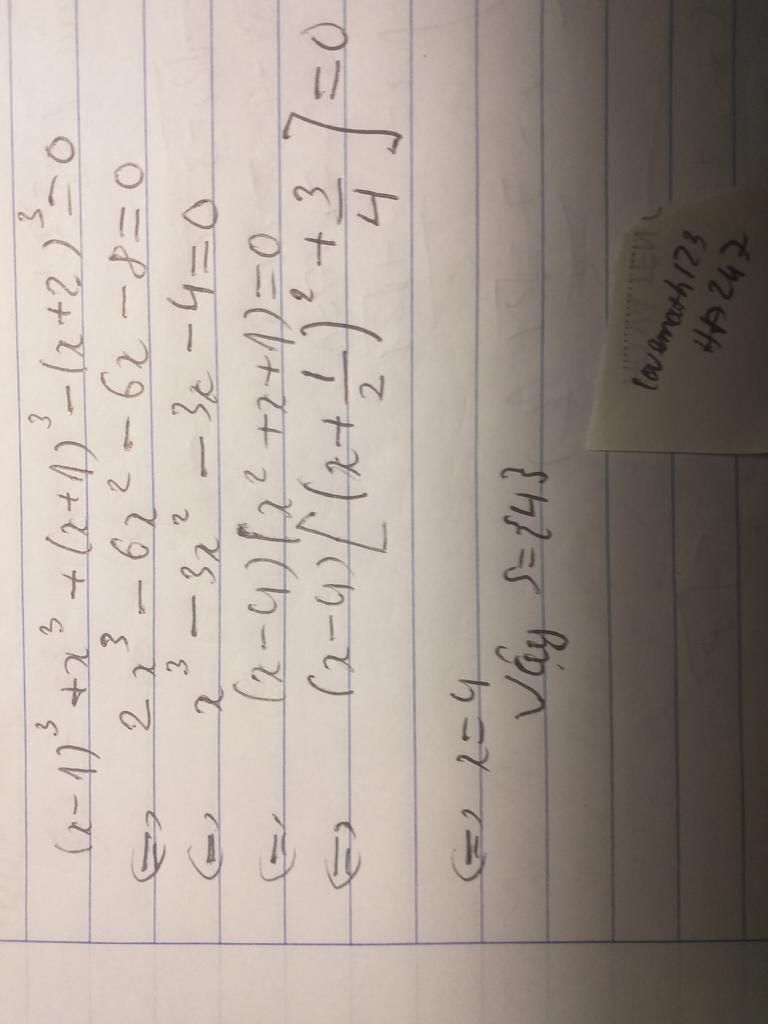 (x-1)³+x³+(x+1)³-(x+2)³=0
⇔ 2x³-6x²-6x-8=0
⇔ x³-3x²-3x-4=0
⇔ (x-4)(x²+x+1)=0
⇔ (x-4)[(x+1/2)²+3/4]=0
⇔ x=4
Vậy S={4}
lovemath123